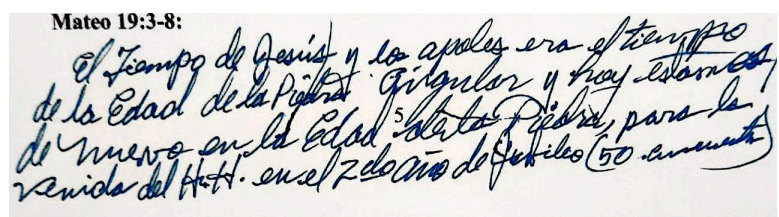 Mateo 19:3-8:
El Tiempo de Jesús y los apoles era el tiempo
de la Edad de la Piedra Angular y hoy estamos
de nuevo en la Edad 5 de la Piedra, para la
venida del H.H. en el 2do año de Jubileo (50 cincuenta)